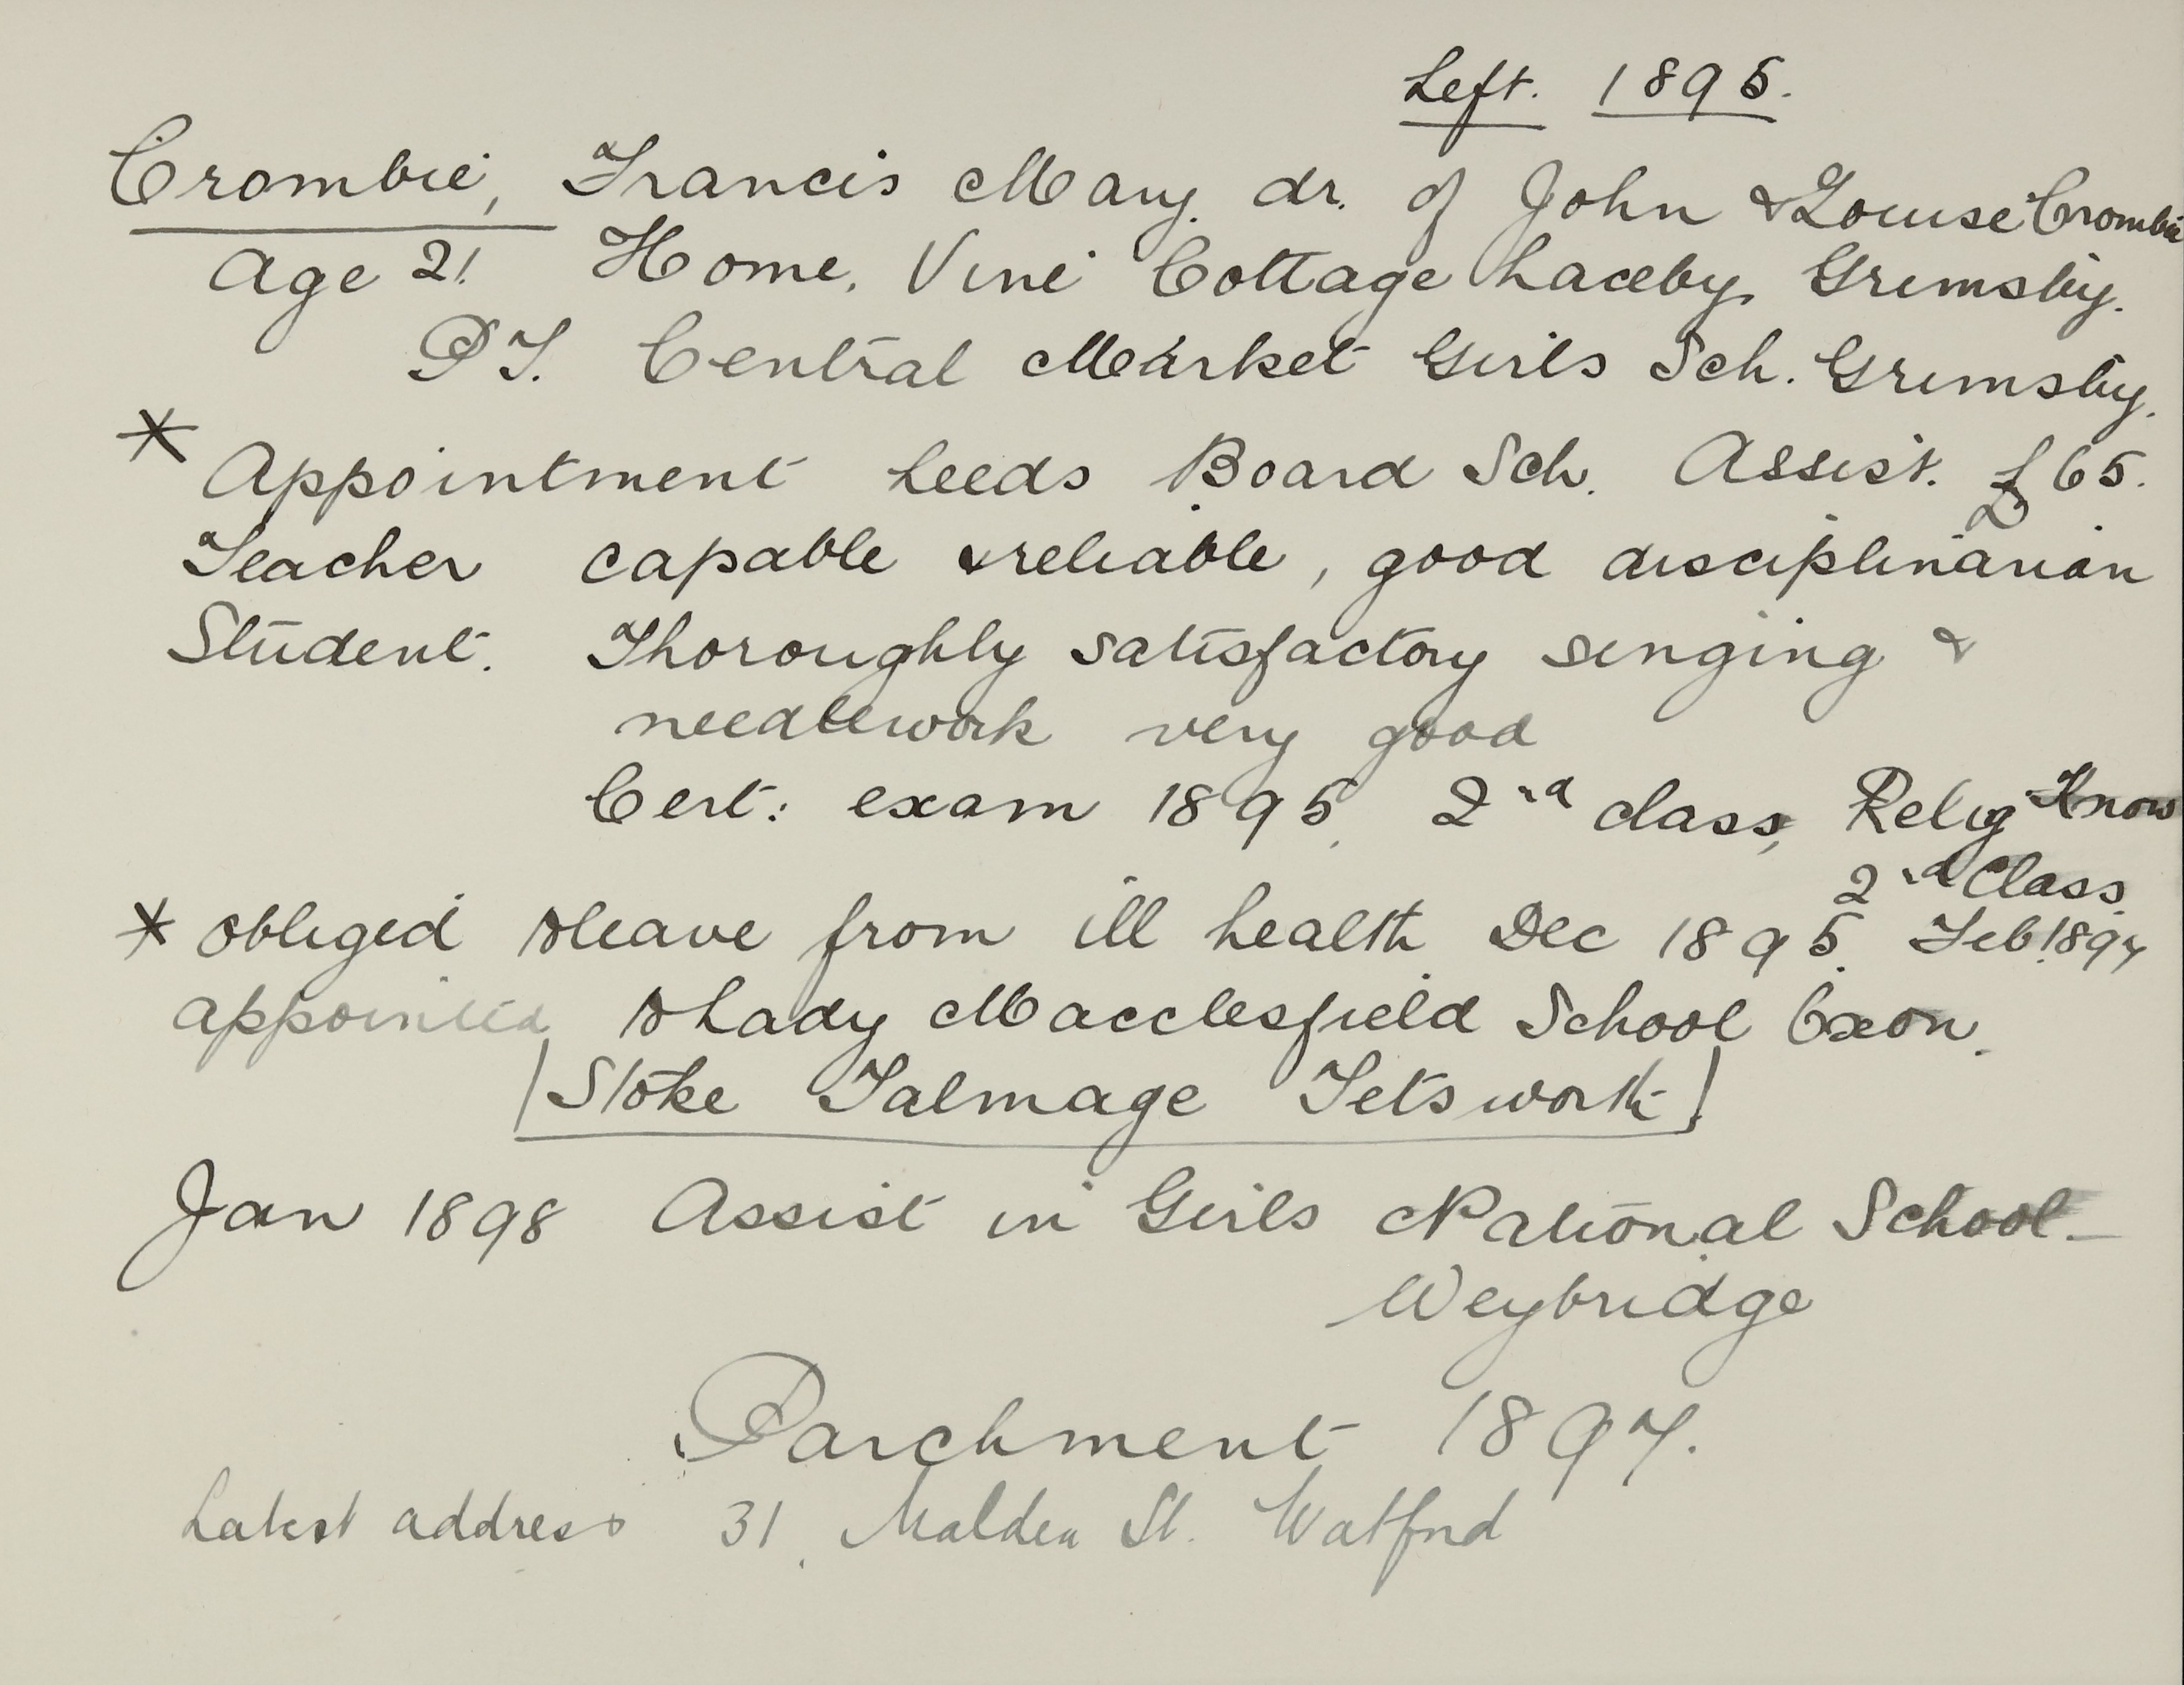 Left. 1895.
Crombie, Francis Mary. dr. of John & Louise Crombie
Age 21. Home, Vine Cottage Laceby, Grimsby.
P.T. Central Market Girls Sch. Grimsby.
* Appointment Leeds Board Sch. Assist. £65.
Teacher capable & reliable, good disciplinarian
Student. Thoroughly satisfactory singing &
needlework very good
Cert: exam 1895, 2nd class, Relig Know
2nd Class
* obliged to leave from ill health Dec 1895. Feb. 1897
appointed to Lady Macclesfield School Oxon.
(Stoke Talmage Tetsworth)
Jan 1898 Assist in Girls National School -
Weybridge
Parchment 1897.
Latest address 31, Malden St. Watford